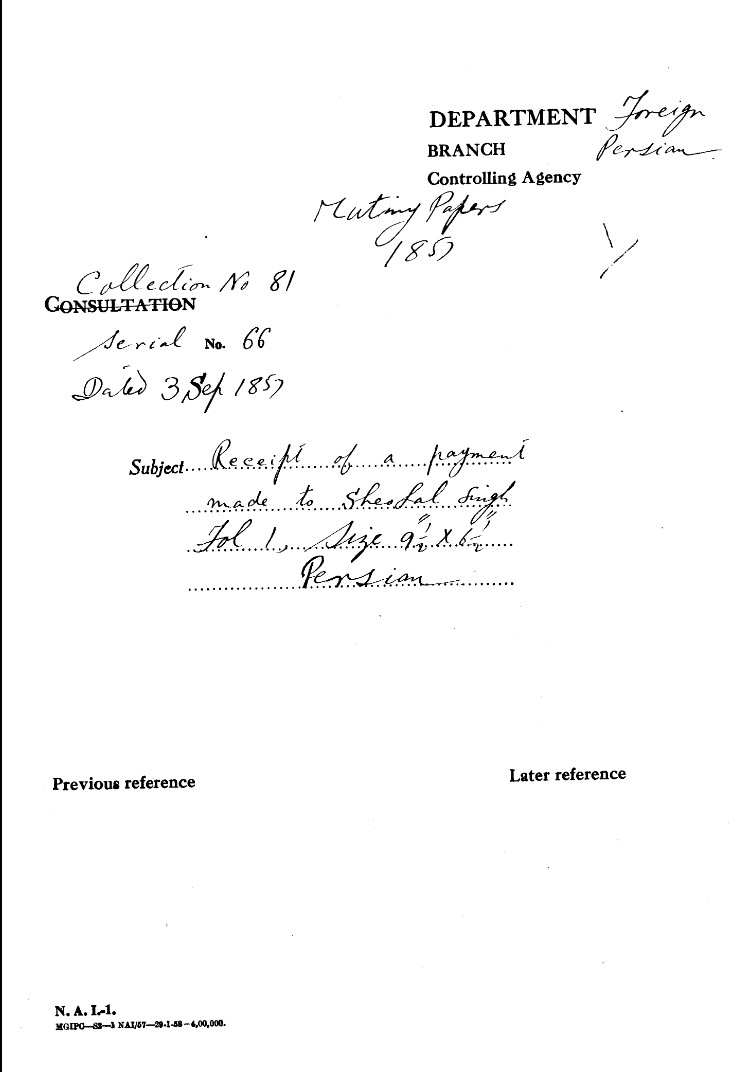 DEPARTMENT Foreign
BRANCH Persian
Controlling Agency
Mutiny Papers
1857
Collection No 81
CONSULTATION
Serial No. 66
Dated 3 Sep 1857
Subject Receipt of a payment
made to Sheolal Singh
Fol 1, Size 9½" X 6½"
Persian
Previous reference
Later reference
N. A. I.-1.
MGIPC—S2—3 NAI/57—29-1-58—4,00,000.